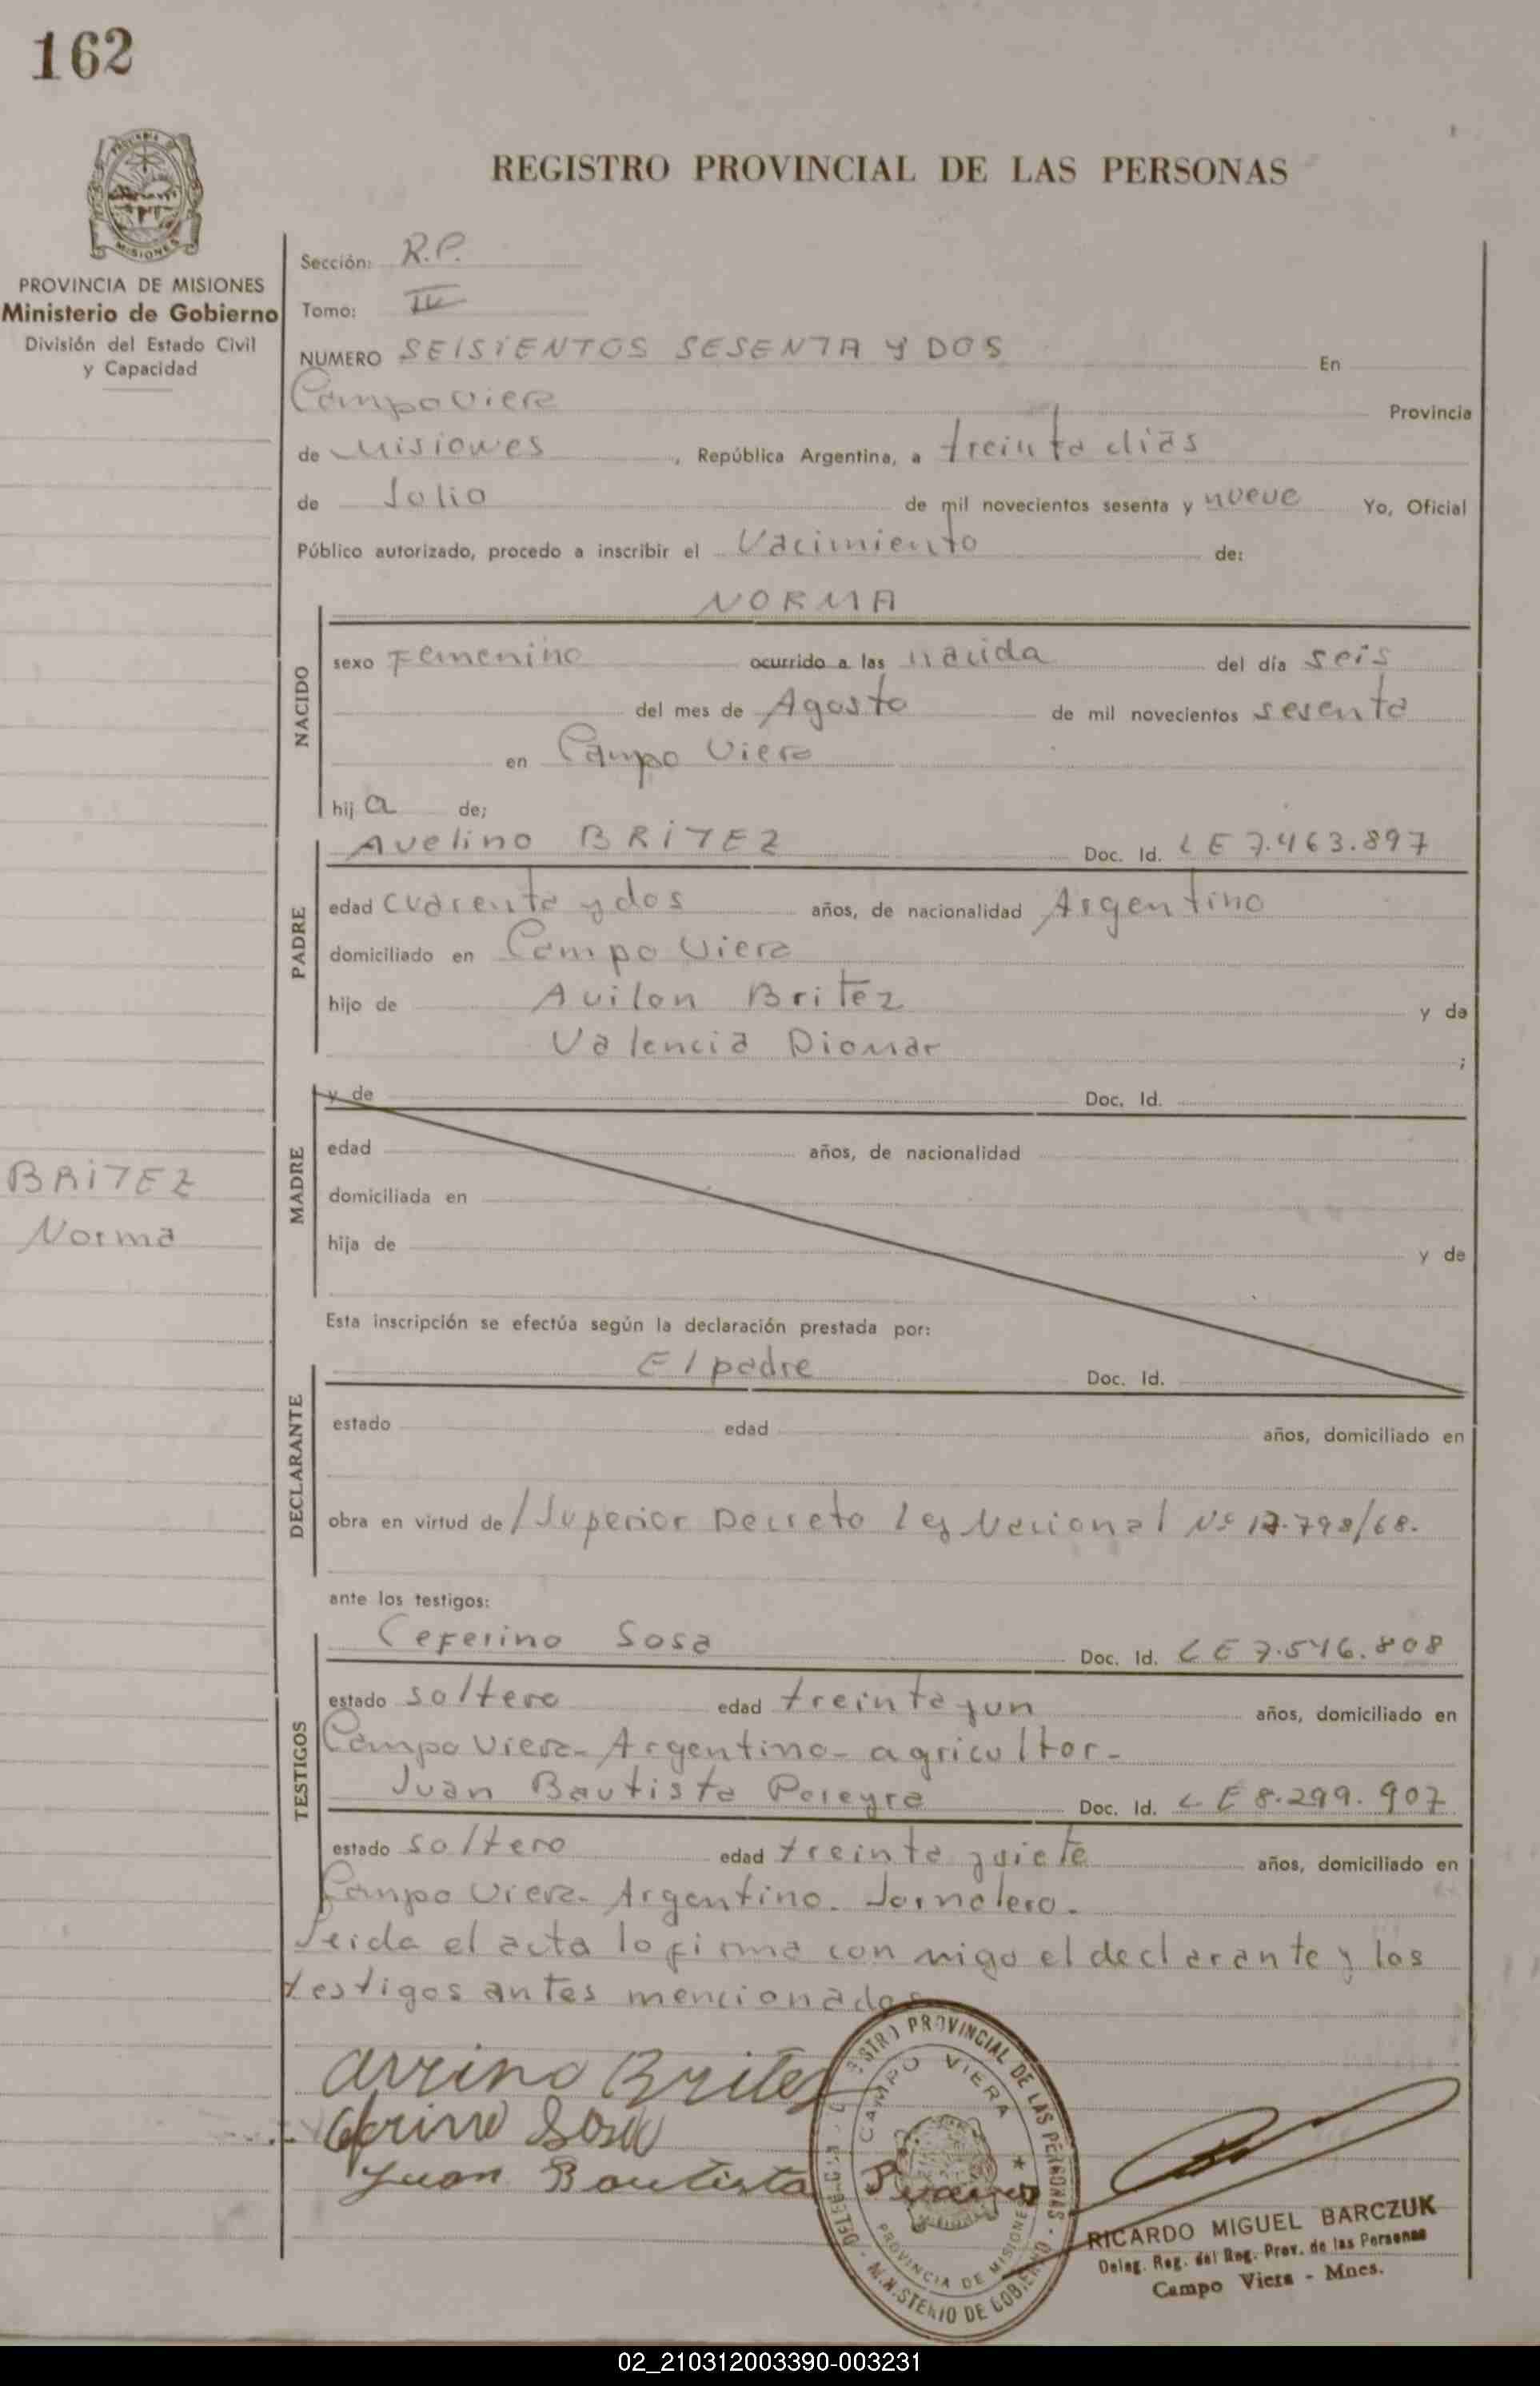 162
REGISTRO PROVINCIAL DE LAS PERSONAS
PROVINCIA DE MISIONES
Ministerio de Gobierno
División del Estado Civil
y Capacidad
Sección: R.P.
Tomo: IV
NUMERO SEISIENTOS SESENTA Y DOS En
Campo Viera Provincia
de Misiones, República Argentina, a treinta dias
de Julio de mil novecientos sesenta y nueve Yo, Oficial
Público autorizado, procedo a inscribir el Nacimiento de:
NORMA
NACIDO
sexo Femenino ocurrido a las nacida del día seis
del mes de Agosto de mil novecientos sesenta
en Campo Viera
hij a de;
PADRE
Avelino BRITEZ Doc. Id. LE 7.463.897
edad cuarenta y dos años, de nacionalidad Argentino
domiciliado en Campo Viera
hijo de Avilon Britez y de
Valencia Diomar ;
MADRE
y de Doc. Id.
edad años, de nacionalidad
domiciliada en
hija de y de
BRITEZ
Norma
Esta inscripción se efectúa según la declaración prestada por:
DECLARANTE
El padre Doc. Id.
estado edad años, domiciliado en
obra en virtud de / Superior Decreto Ley Nacional Nº 17.798/68.
ante los testigos:
TESTIGOS
Ceferino Sosa Doc. Id. LE 7.546.808
estado soltero edad treinta y un años, domiciliado en
Campo Viera - Argentino - agricultor -
Juan Bautista Pereyra Doc. Id. LE 8.299.907
estado soltero edad treinta y siete años, domiciliado en
Campo Viera - Argentino. Jornalero.
Leida el acta lo firma con migo el declarante y los
testigos antes mencionados
Britez
Sosa
Juan Bautista
PROVINCIAL DE LAS PERSONAS - MINISTERIO DE GOBIERNO
CAMPO VIERA
PROVINCIA DE MISIONES
RICARDO MIGUEL BARCZUK
Deleg. Reg. del Reg. Prov. de las Personas
Campo Viera - Mnes.
02_210312003390-003231